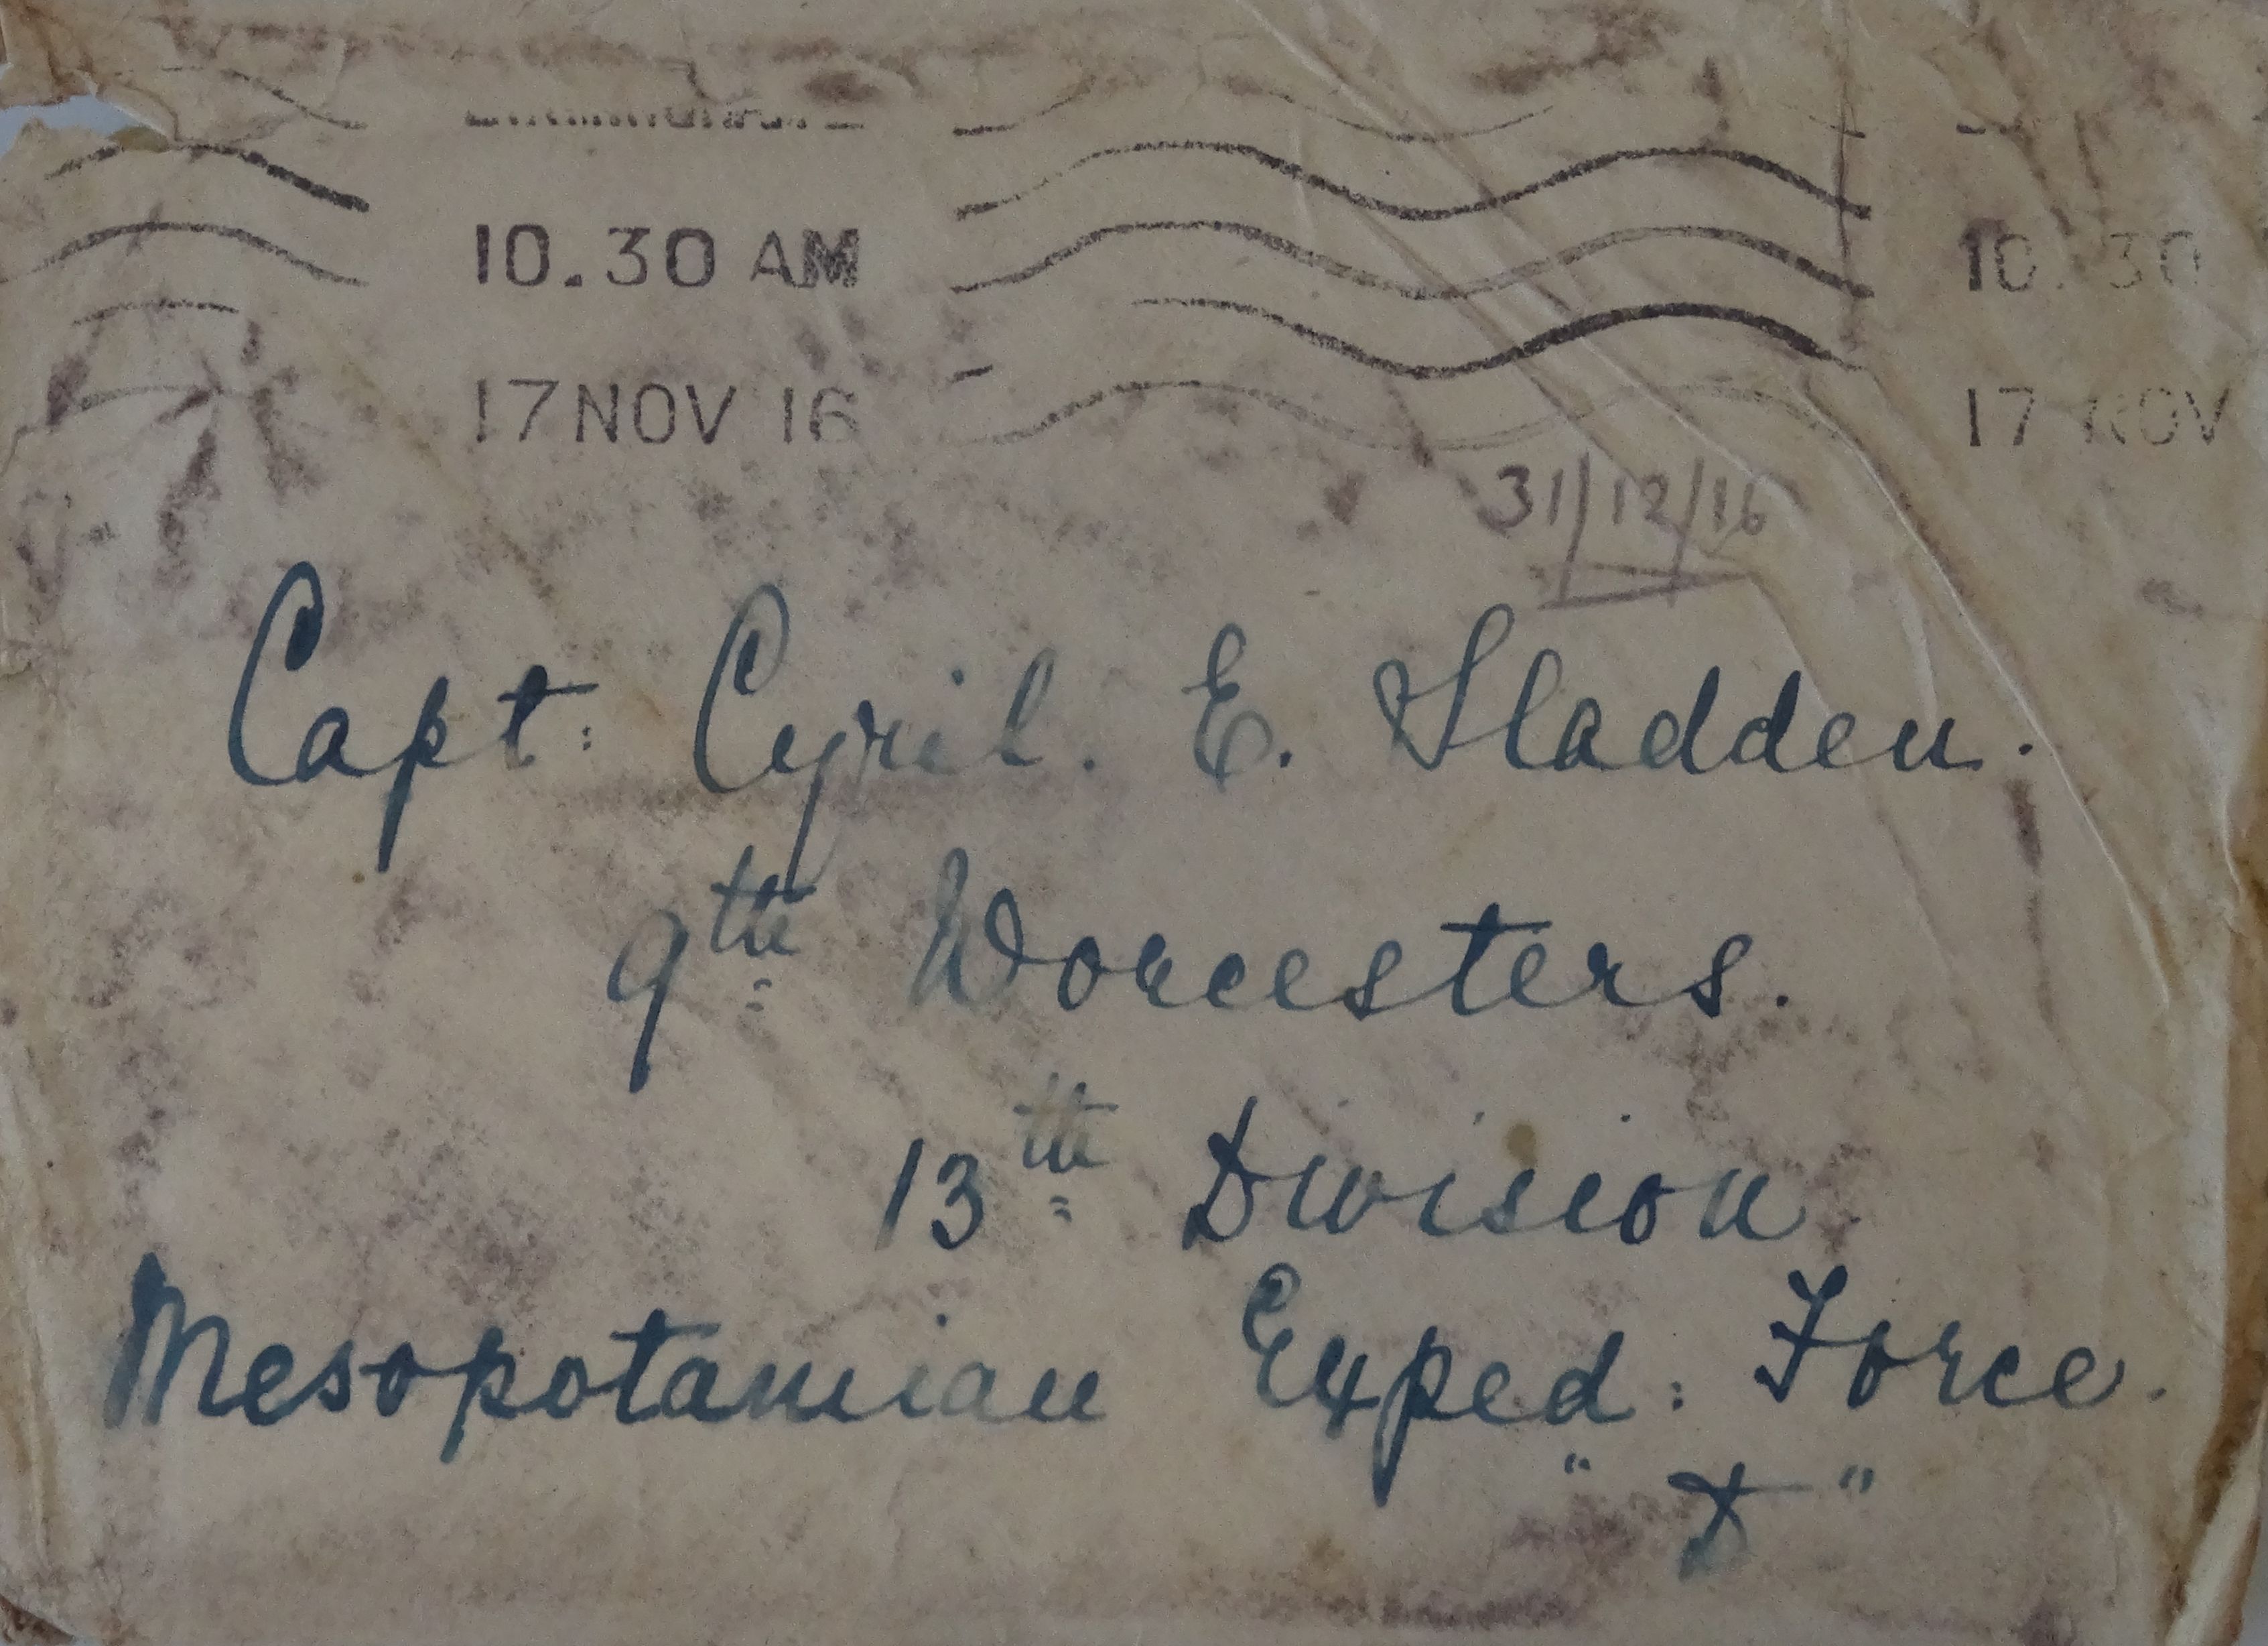 10.30 AM 10.30
17 NOV 16 17 NOV
31/12/16
Capt: Cyril. E. Sladden.
9th Worcesters.
13th Division
Mesopotamian Exped: Force.
"D"